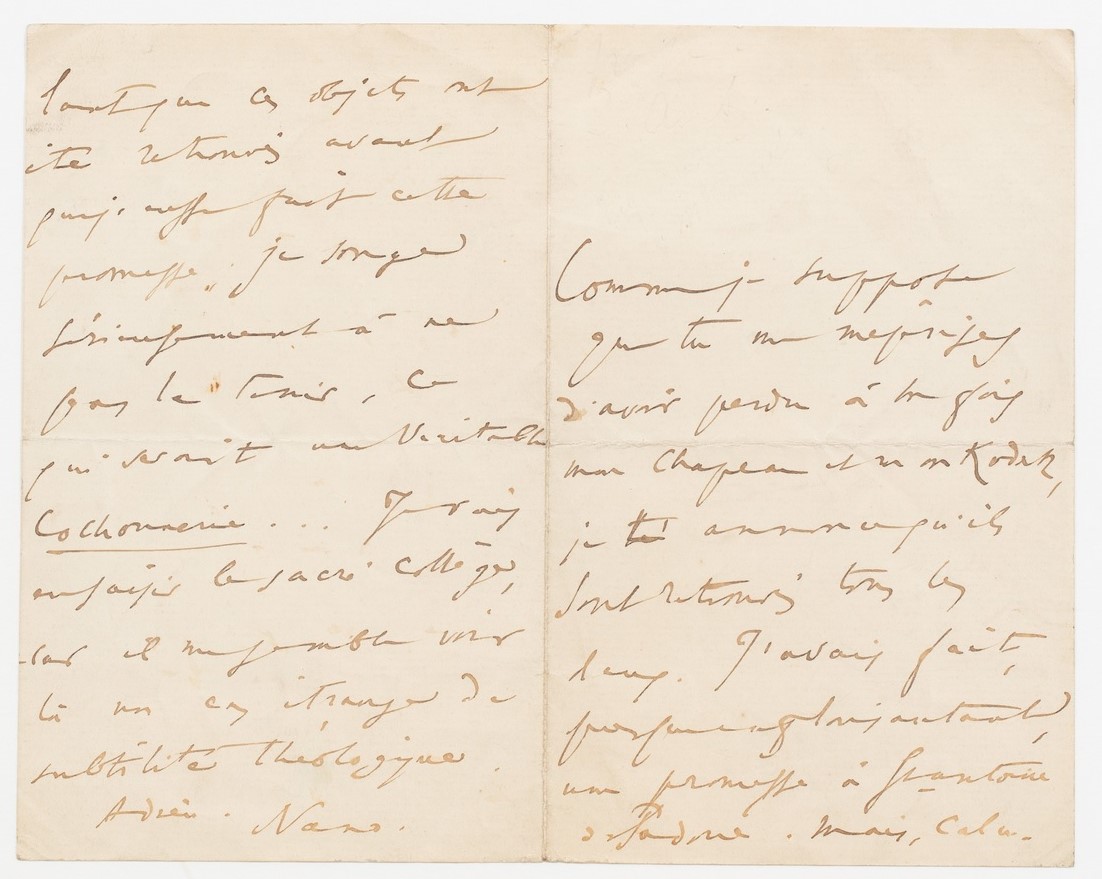 Comme je suppose
que tu me méprises
d'avoir perdu à la fois
mon Chapeau et mon Kodak,
je t' annonce qu'ils
sont retrouvés tous les
deux. J'avais fait,
presque en plaisantant,
une promesse à St antoine
de Padoue. Mais, Calcu-
lant que ces objets ont
été retrouvés avant
que j'eusse fait cette
promesse, je songe
sérieusement à ne
pas la tenir, ce
qui serait une Véritable
Cochonnerie... Je vais
en saisir le sacré collège,
car il me semble voir
là un cas étrange de
subtilité théologique.
Adieu. Nano.